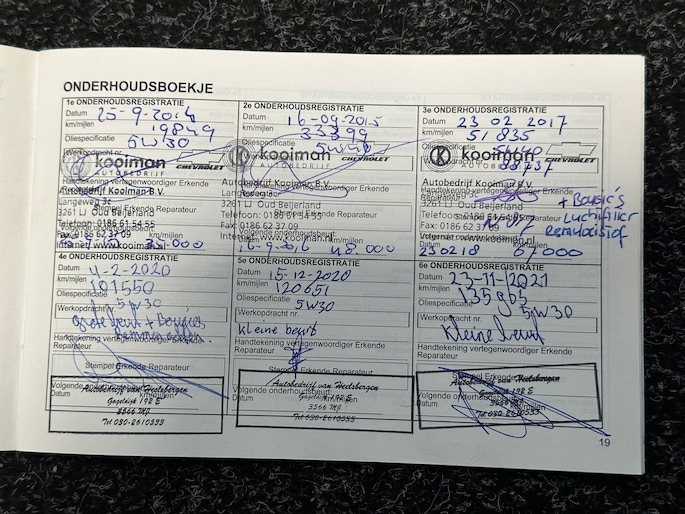 ONDERHOUDSBOEKJE
1e ONDERHOUDSREGISTRATIE
Datum 25-9-2014
km/mijlen 19849
Oliespecificatie 5W30
Werkopdracht nr.
kooiman CHEVROLET
AUTOBEDRIJF
Handtekening vertegenwoordiger Erkende
Autobedrijf Kooiman B.V.
Langeweg 3c
3261 LJ Oud Beijerland
Telefoon: 0186 61 54 55
Fax: 0186 62 37 09
Internet: www.kooiman.nl
2e ONDERHOUDSREGISTRATIE
Datum 16-09-2015
km/mijlen 33399
Oliespecificatie
kooiman CHEVROLET
AUTOBEDRIJF
Autobedrijf Kooiman B.V.
3261 LJ Oud Beijerland
Telefoon: 0186 61 54 55
Fax: 0186 62 37 09
www.kooiman.nl
3e ONDERHOUDSREGISTRATIE
Datum 23 02 2017
km/mijlen 51835
Oliespecificatie 5W40
kooiman CHEVROLET
AUTOBEDRIJF
Handtekening vertegenwoordiger Erkende
Autobedrijf Kooiman B.V.
3261 LJ Oud Beijerland
+ Bougie's
Luchtfilter
remvloeistof
Fax: 0186 62 37 09
www.kooiman.nl
230218 67000
4e ONDERHOUDSREGISTRATIE
Datum 4-2-2020
km/mijlen 101550
Oliespecificatie 5W30
Werkopdracht nr.
grote beurt + Bougies
Handtekening vertegenwoordiger Erkende
Reparateur
Stempel Erkende Reparateur
Volgende onderhoudsbeurt
Datum km/mijlen
Autobedrijf van Heelsbergen
Gageldijk 192 E
3566 MG
Tel 030-2610333
5e ONDERHOUDSREGISTRATIE
Datum 15-12-2020
km/mijlen 120651
Oliespecificatie 5W30
Werkopdracht nr.
kleine beurt
Handtekening vertegenwoordiger Erkende
Reparateur
Stempel Erkende Reparateur
Volgende onderhoudsbeurt
Datum
Autobedrijf van Heelsbergen
Gageldijk 192 E
3566 MG
Tel 030-2610333
6e ONDERHOUDSREGISTRATIE
Datum 23-11-2021
km/mijlen 135963
Oliespecificatie 5W30
Werkopdracht nr.
kleine beurt
Handtekening vertegenwoordiger Erkende
Reparateur
Stempel Erkende Reparateur
Volgende onderhoudsbeurt
Datum
Autobedrijf van Heelsbergen
Gageldijk 192 E
3566 MG
Tel 030-2610333
19